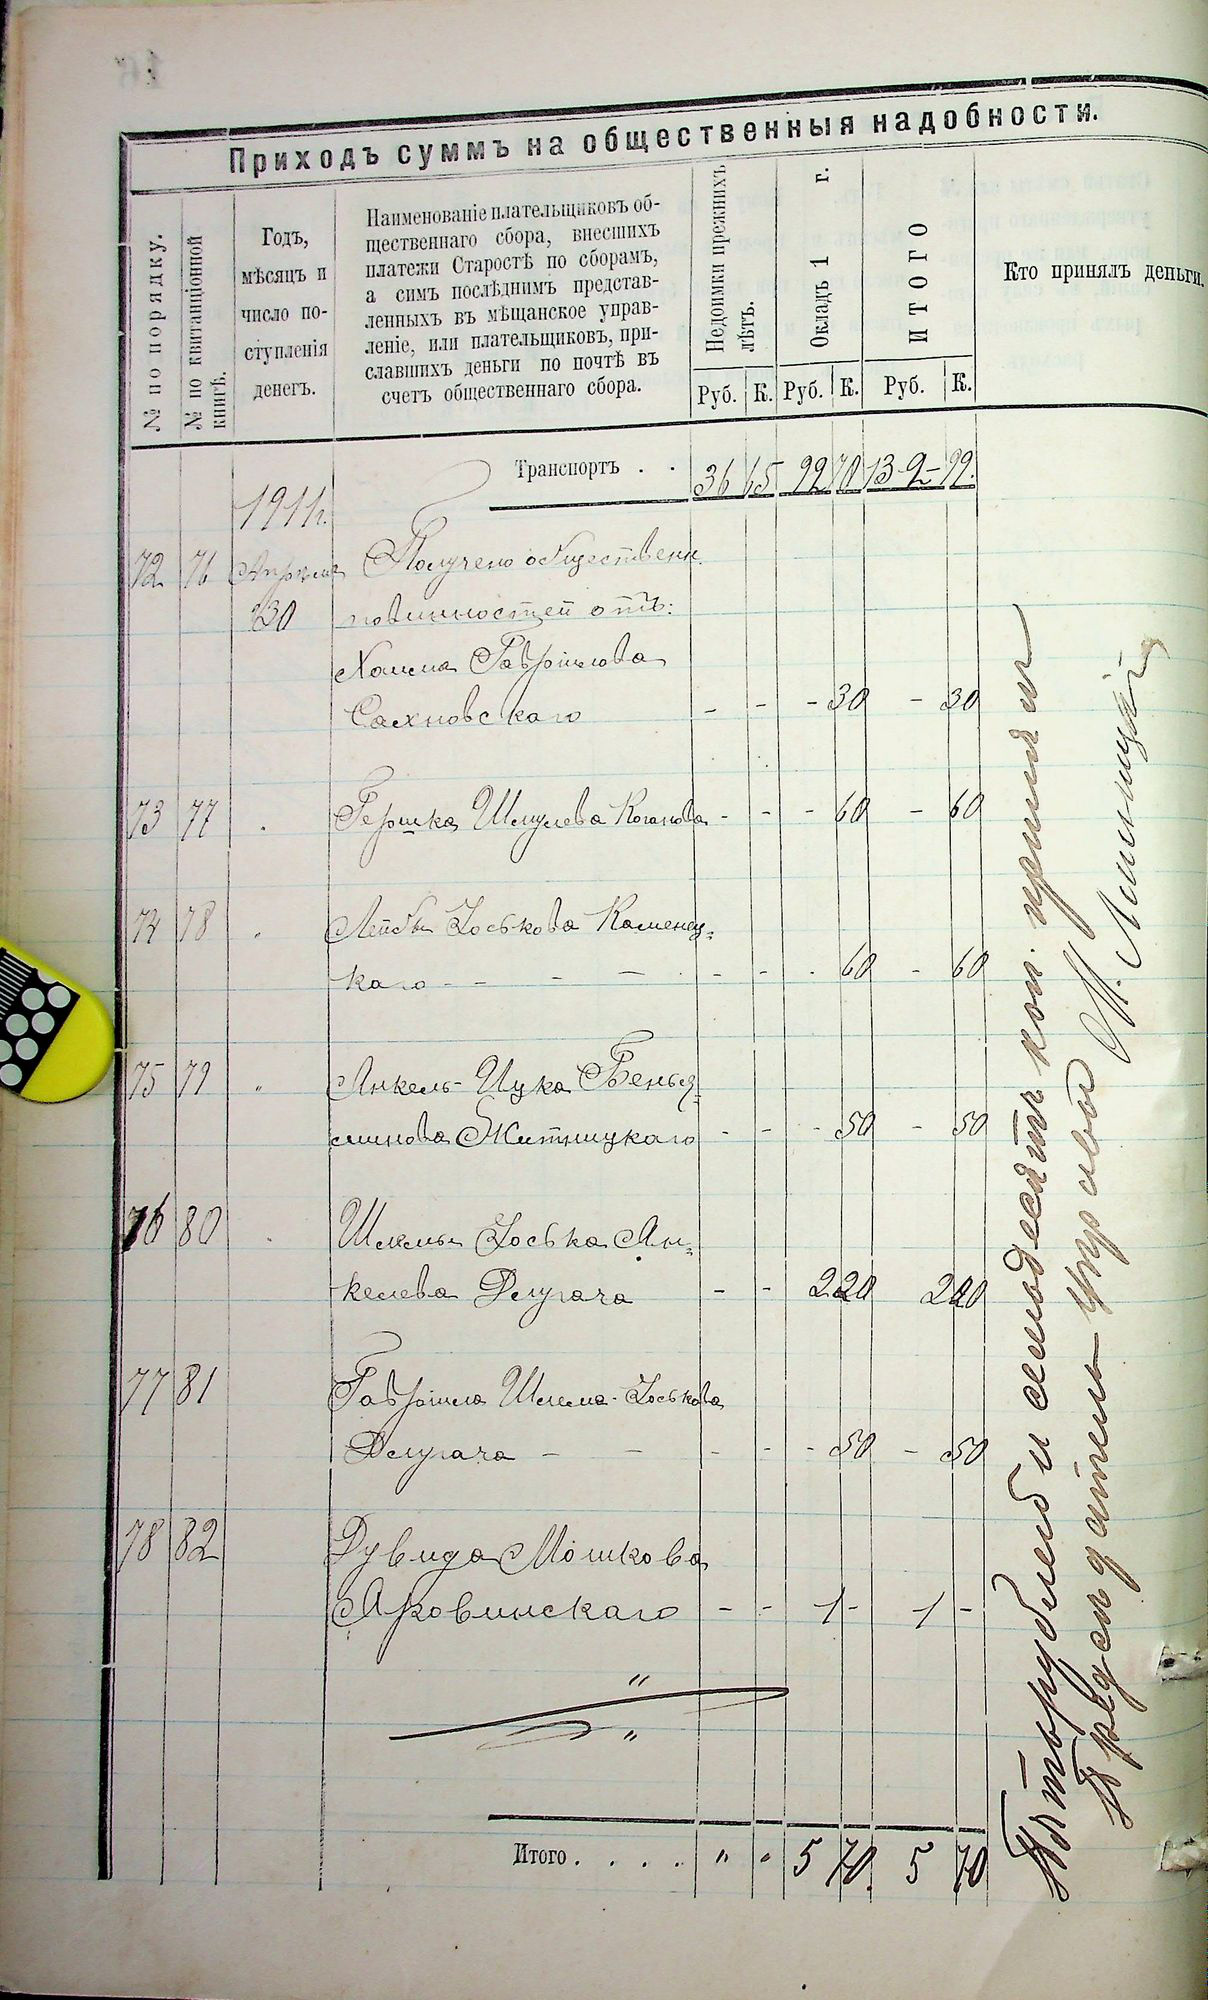 Приходъ суммъ на общественныя надобности.
№ по порядку.
№ по квитанціонной
книгѣ.
Годъ,
мѣсяцъ и
число по-
ступленія
денегъ.
Наименованіе плательщиковъ об-
щественнаго сбора, внесшихъ
платежи Старостѣ по сборамъ,
а симъ послѣднимъ представ-
ленныхъ въ мѣщанское управ-
леніе, или плательщиковъ, при-
славшихъ деньги по почтѣ въ
счетъ общественнаго сбора.
Недоимки прежнихъ
лѣтъ.
Окладъ 1 г.
ИТОГО
Кто принялъ деньги.
Руб. К. Руб. К. Руб. К.
Транспортъ . . 36 65
1911 г.
72 76 Апрѣля Получено общественн.
30 повинностей отъ:
Хаима Гавріилова
Сахновскаго - - - 30 - 30
73 77 Гершка Шмулева Коганова - - - 60 - 60
74 78 Лейбы Іоськова Каменец=
каго - - - - - - 60 - 60
75 79 " Янкель-Ицка Бенья=
минова Житницкаго - - - 50 - 50
76 80 Шлемы Іоська Ян=
келева Длугача - - 2 20 2 20
77 81 Гавріила Шлема-Іоськова
Длугача - - - - - 50 - 50
78 82 Дувида Мошкова
Яровинскаго - - 1 - 1 -
"
"
Итого . . . . " " 5 70. 5 70
Пять рублей и семьдесятъ коп. принялъ
Предсѣдатель Управы М.